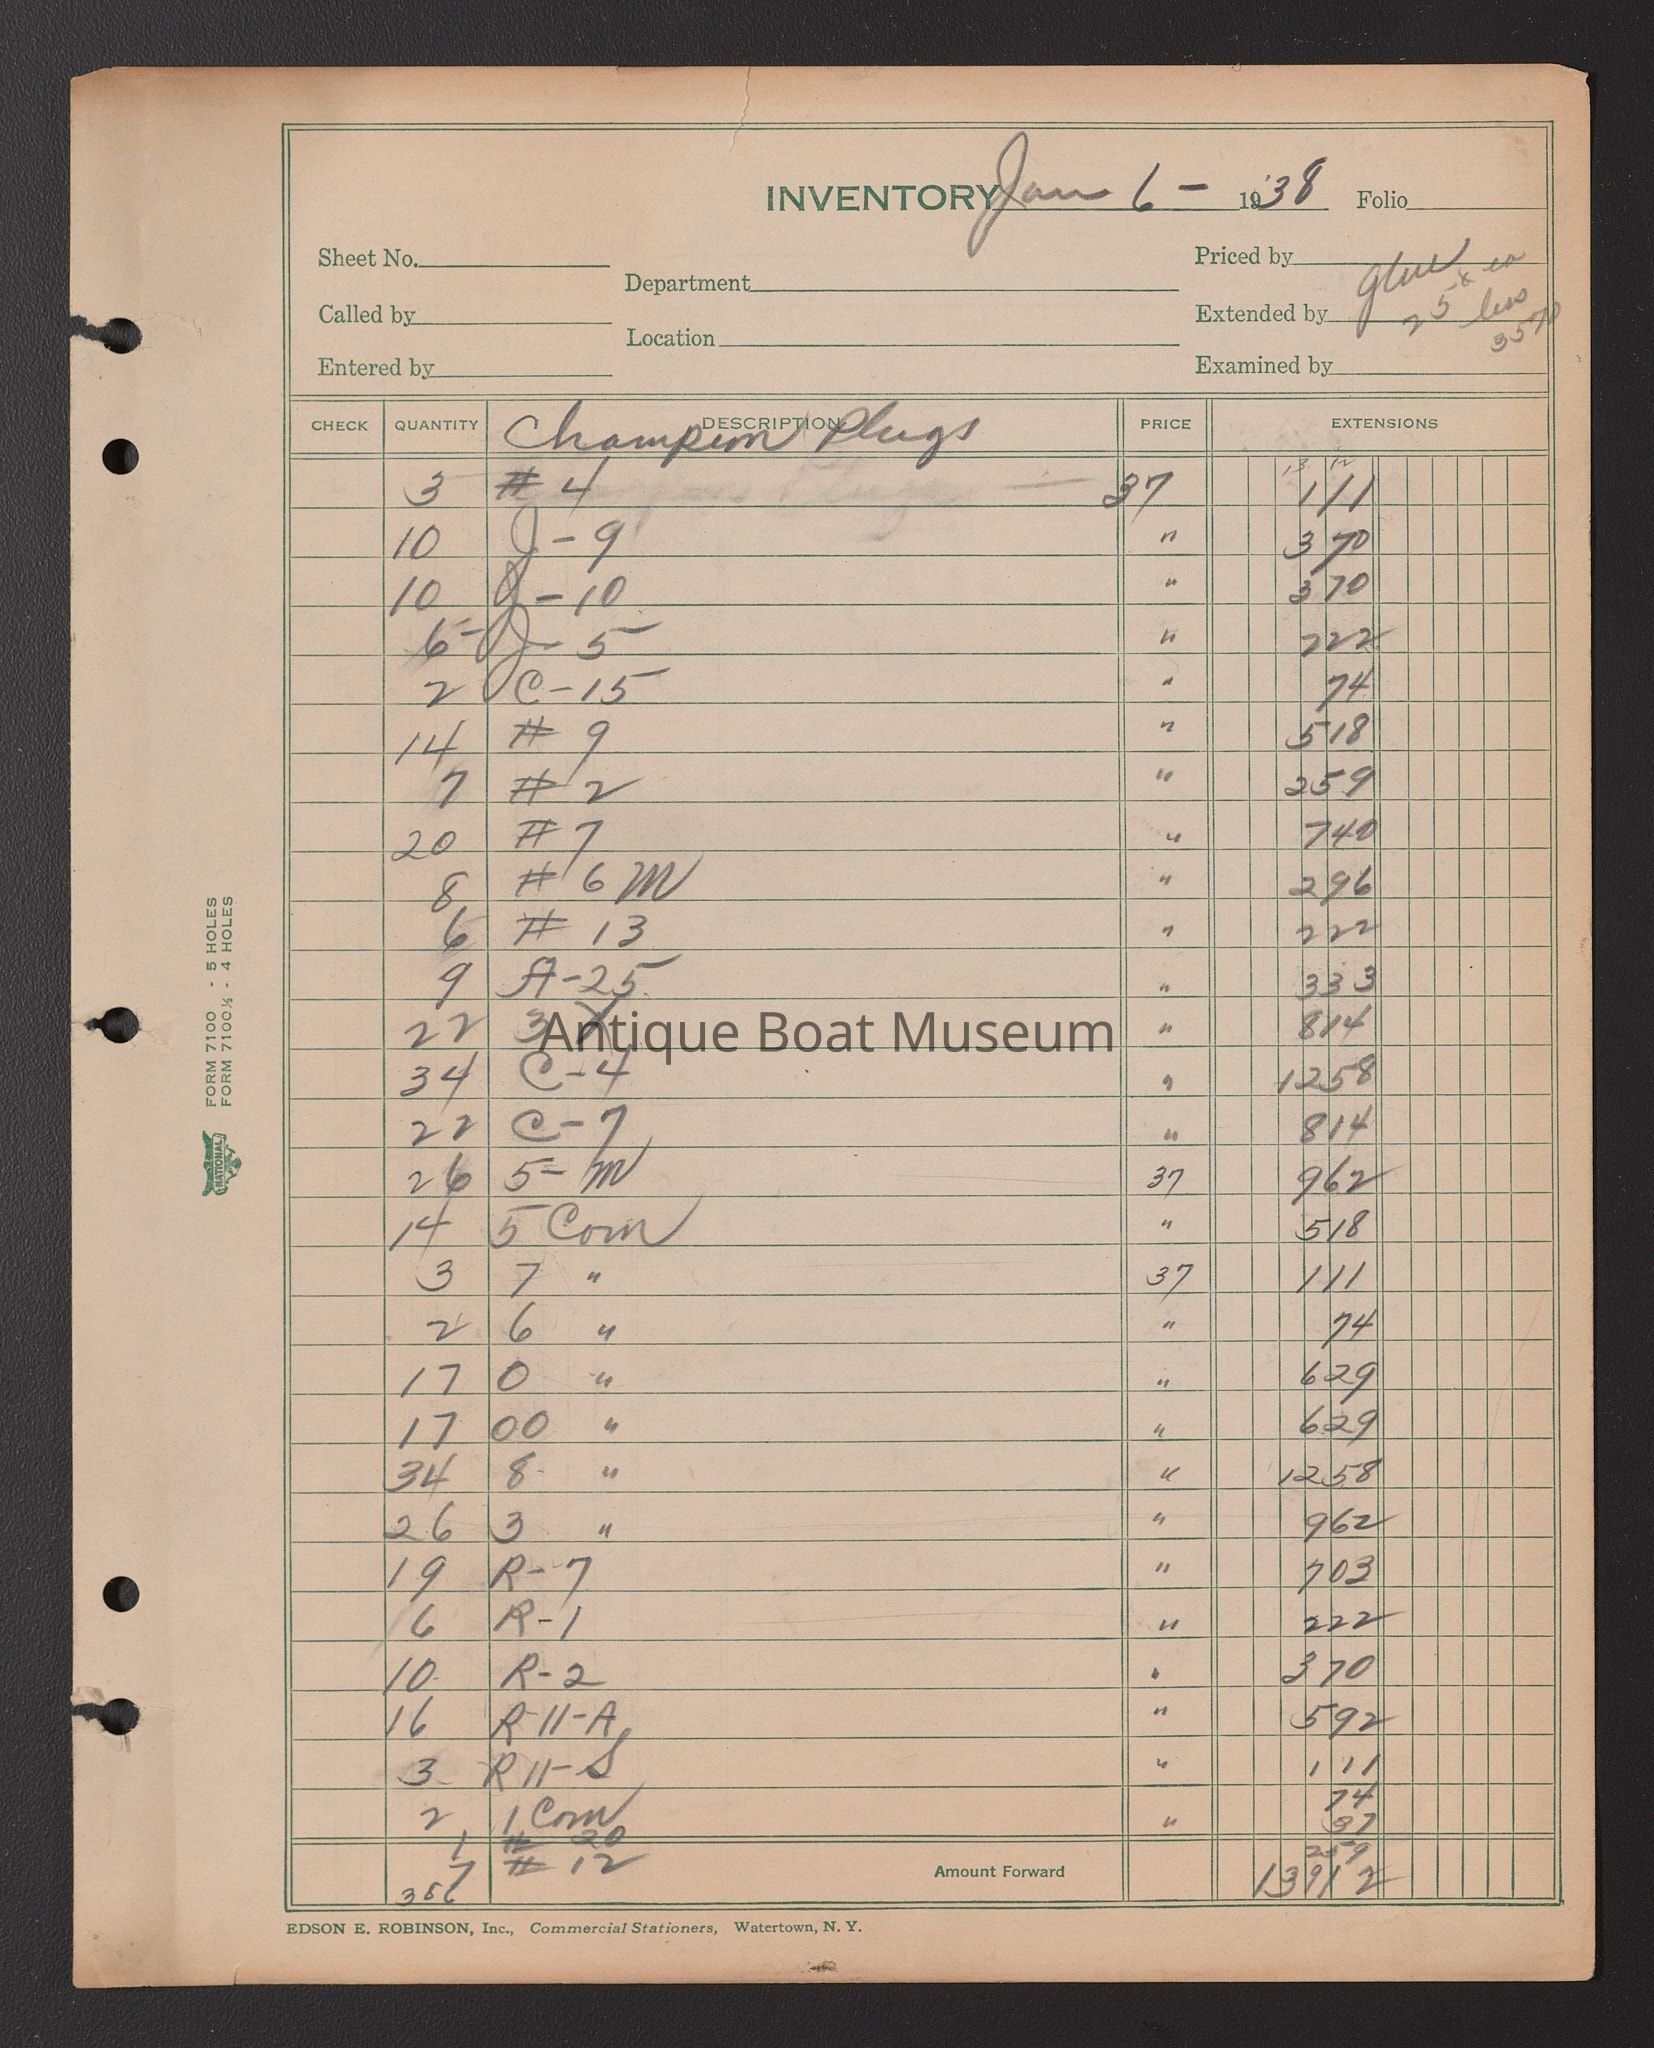 INVENTORY Jan 6 - 1938 Folio
Sheet No. Priced by
Department
glue
25¢ ea
Called by Extended by
less
35 70
Location
Entered by Examined by
CHECK QUANTITY DESCRIPTION PRICE EXTENSIONS
Champion Plugs
13 12
3 # 4 37 111
10 J-9 " 370
10 J-10 " 370
6 - J-5 " 222
2 C-15 " 74
14 # 9 " 518
7 # 2 " 259
20 # 7 " 740
8 # 6 M " 296
6 # 13 " 222
9 A-25 " 333
22 3 X " 814
Antique Boat Museum
34 C-4 " 1258
22 C-7 " 814
26 5-M 37 962
14 5 Com " 518
3 7 " 37 111
2 6 " " 74
17 0 " " 629
17 00 " " 629
34 8 " " 1258
26 3 " " 962
19 R-7 " 703
6 R-1 " 222
10 R-2 " 370
16 R-11-A " 592
3 R 11-S " 111
2 1 Com " 74
1 # 20 37
7 # 12 259
Amount Forward 13912
EDSON E. ROBINSON, Inc., Commercial Stationers, Watertown, N. Y.
FORM 7100 - 5 HOLES
FORM 7100½ - 4 HOLES
NATIONAL